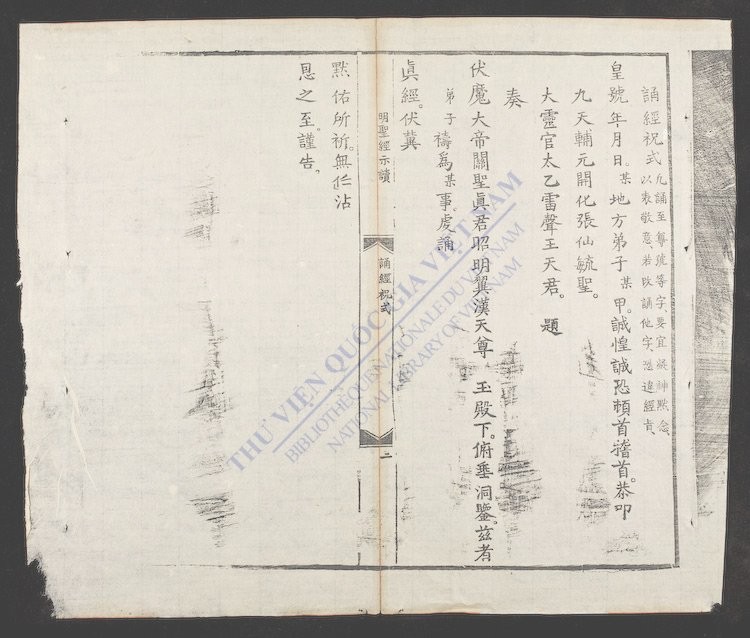 誦經祝式 凡誦至尊號等字、要宜凝神默念、
以表敬意、若改誦他字、恐違經旨、
皇號年月日。某地方弟子某甲。誠惶誠恐頓首稽首。恭叩
九天輔元開化張仙毓聖。
大靈官太乙雷聲王天君。 題
奏
伏魔大帝關聖眞君昭明翼漢天尊 玉殿下。俯垂洞鑒。茲者
弟子禱爲某事。虔誦
眞經。伏冀
明聖經示讀 誦經祝式 二
默佑所祈。無任沾
恩之至。謹告、
THƯ VIỆN QUỐC GIA VIỆT NAM
BIBLIOTHÈQUE NATIONALE DU VIETNAM
NATIONAL LIBRARY OF VIETNAM